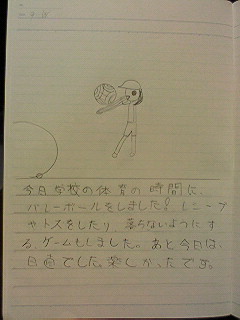 今日学校の体育の時間に、
バレーボールをしました！レシーブ
やトスをしたり落ちないようにす
るゲームもしました。あと今日は、
日直でした。楽しかったです。